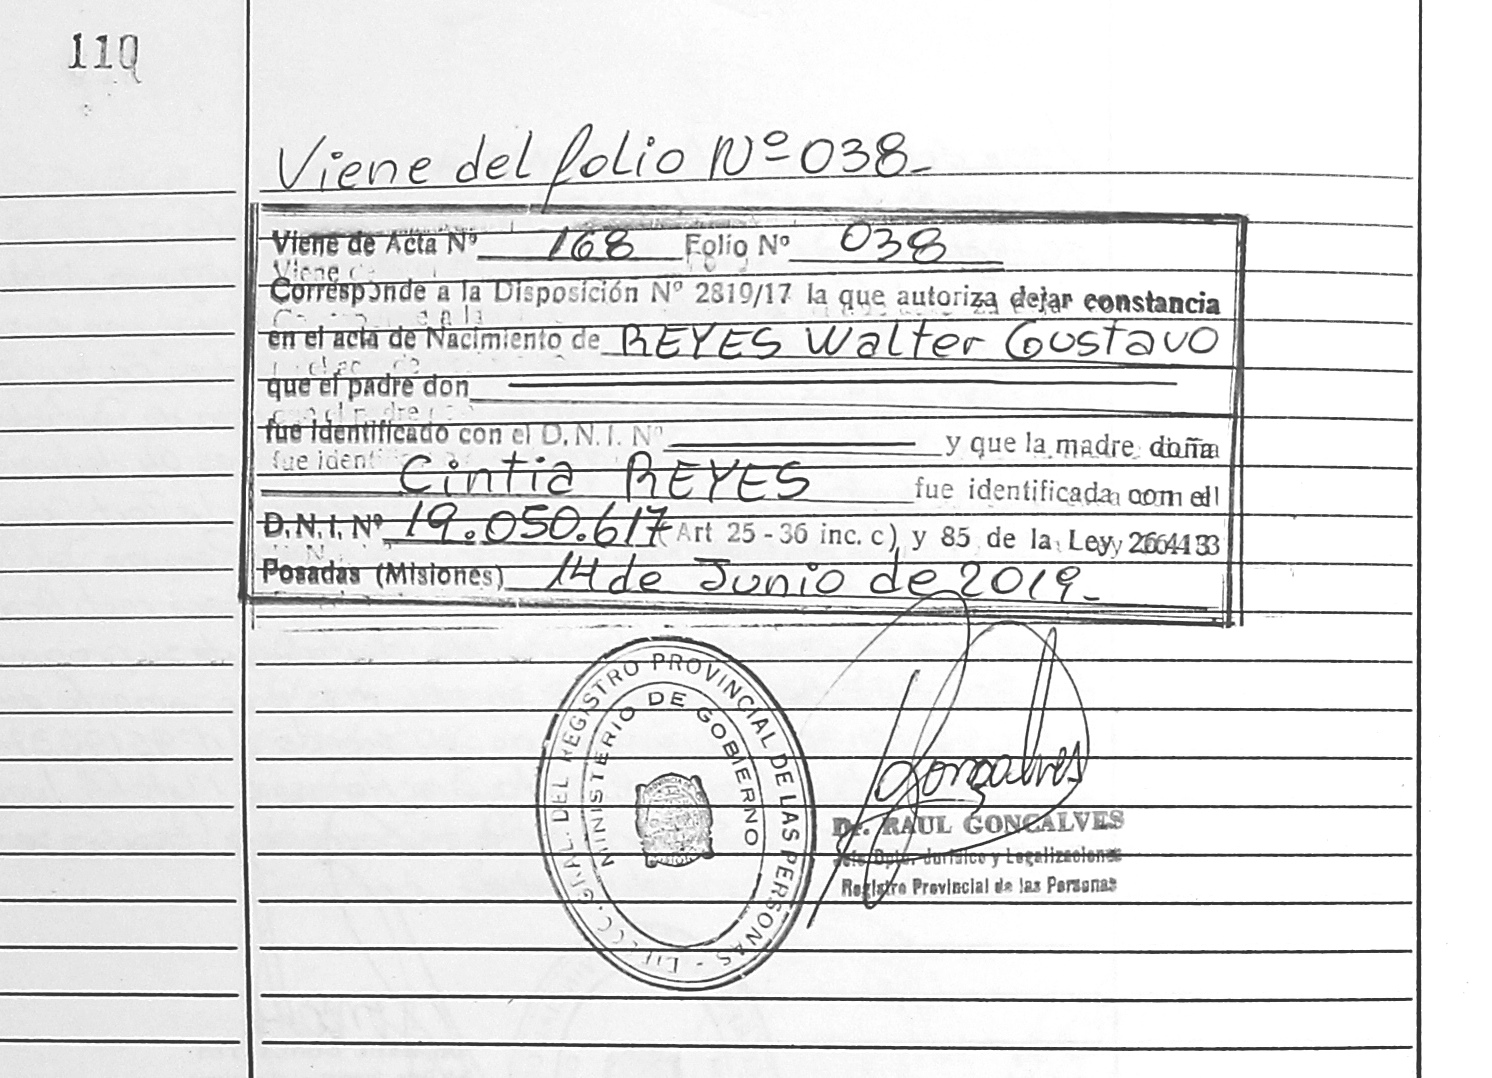 110
Viene del folio Nº 038-
Viene de Acta Nº 168 Folio Nº 038
Viene
Corresponde a la Disposición Nº 2819/17 la que autoriza dejar constancia
en el acta de Nacimiento de REYES Walter Gustavo
que el padre don
fue identificado con el D.N.I. Nº y que la madre doña
fue ident
Cintia REYES fue identificada con el
D.N.I. Nº 19.050.617 (Art 25 - 36 inc. c) y 85 de la Ley 26413
Posadas (Misiones) 14 de Junio de 2019-
GRAL. DEL REGISTRO PROVINCIAL DE LAS PERSONAS -
MINISTERIO DE GOBIERNO
Gonçalves
Dr. RAUL GONCALVES
Jefe Dpto. Jurídico y Legalizaciones
Registro Provincial de las Personas